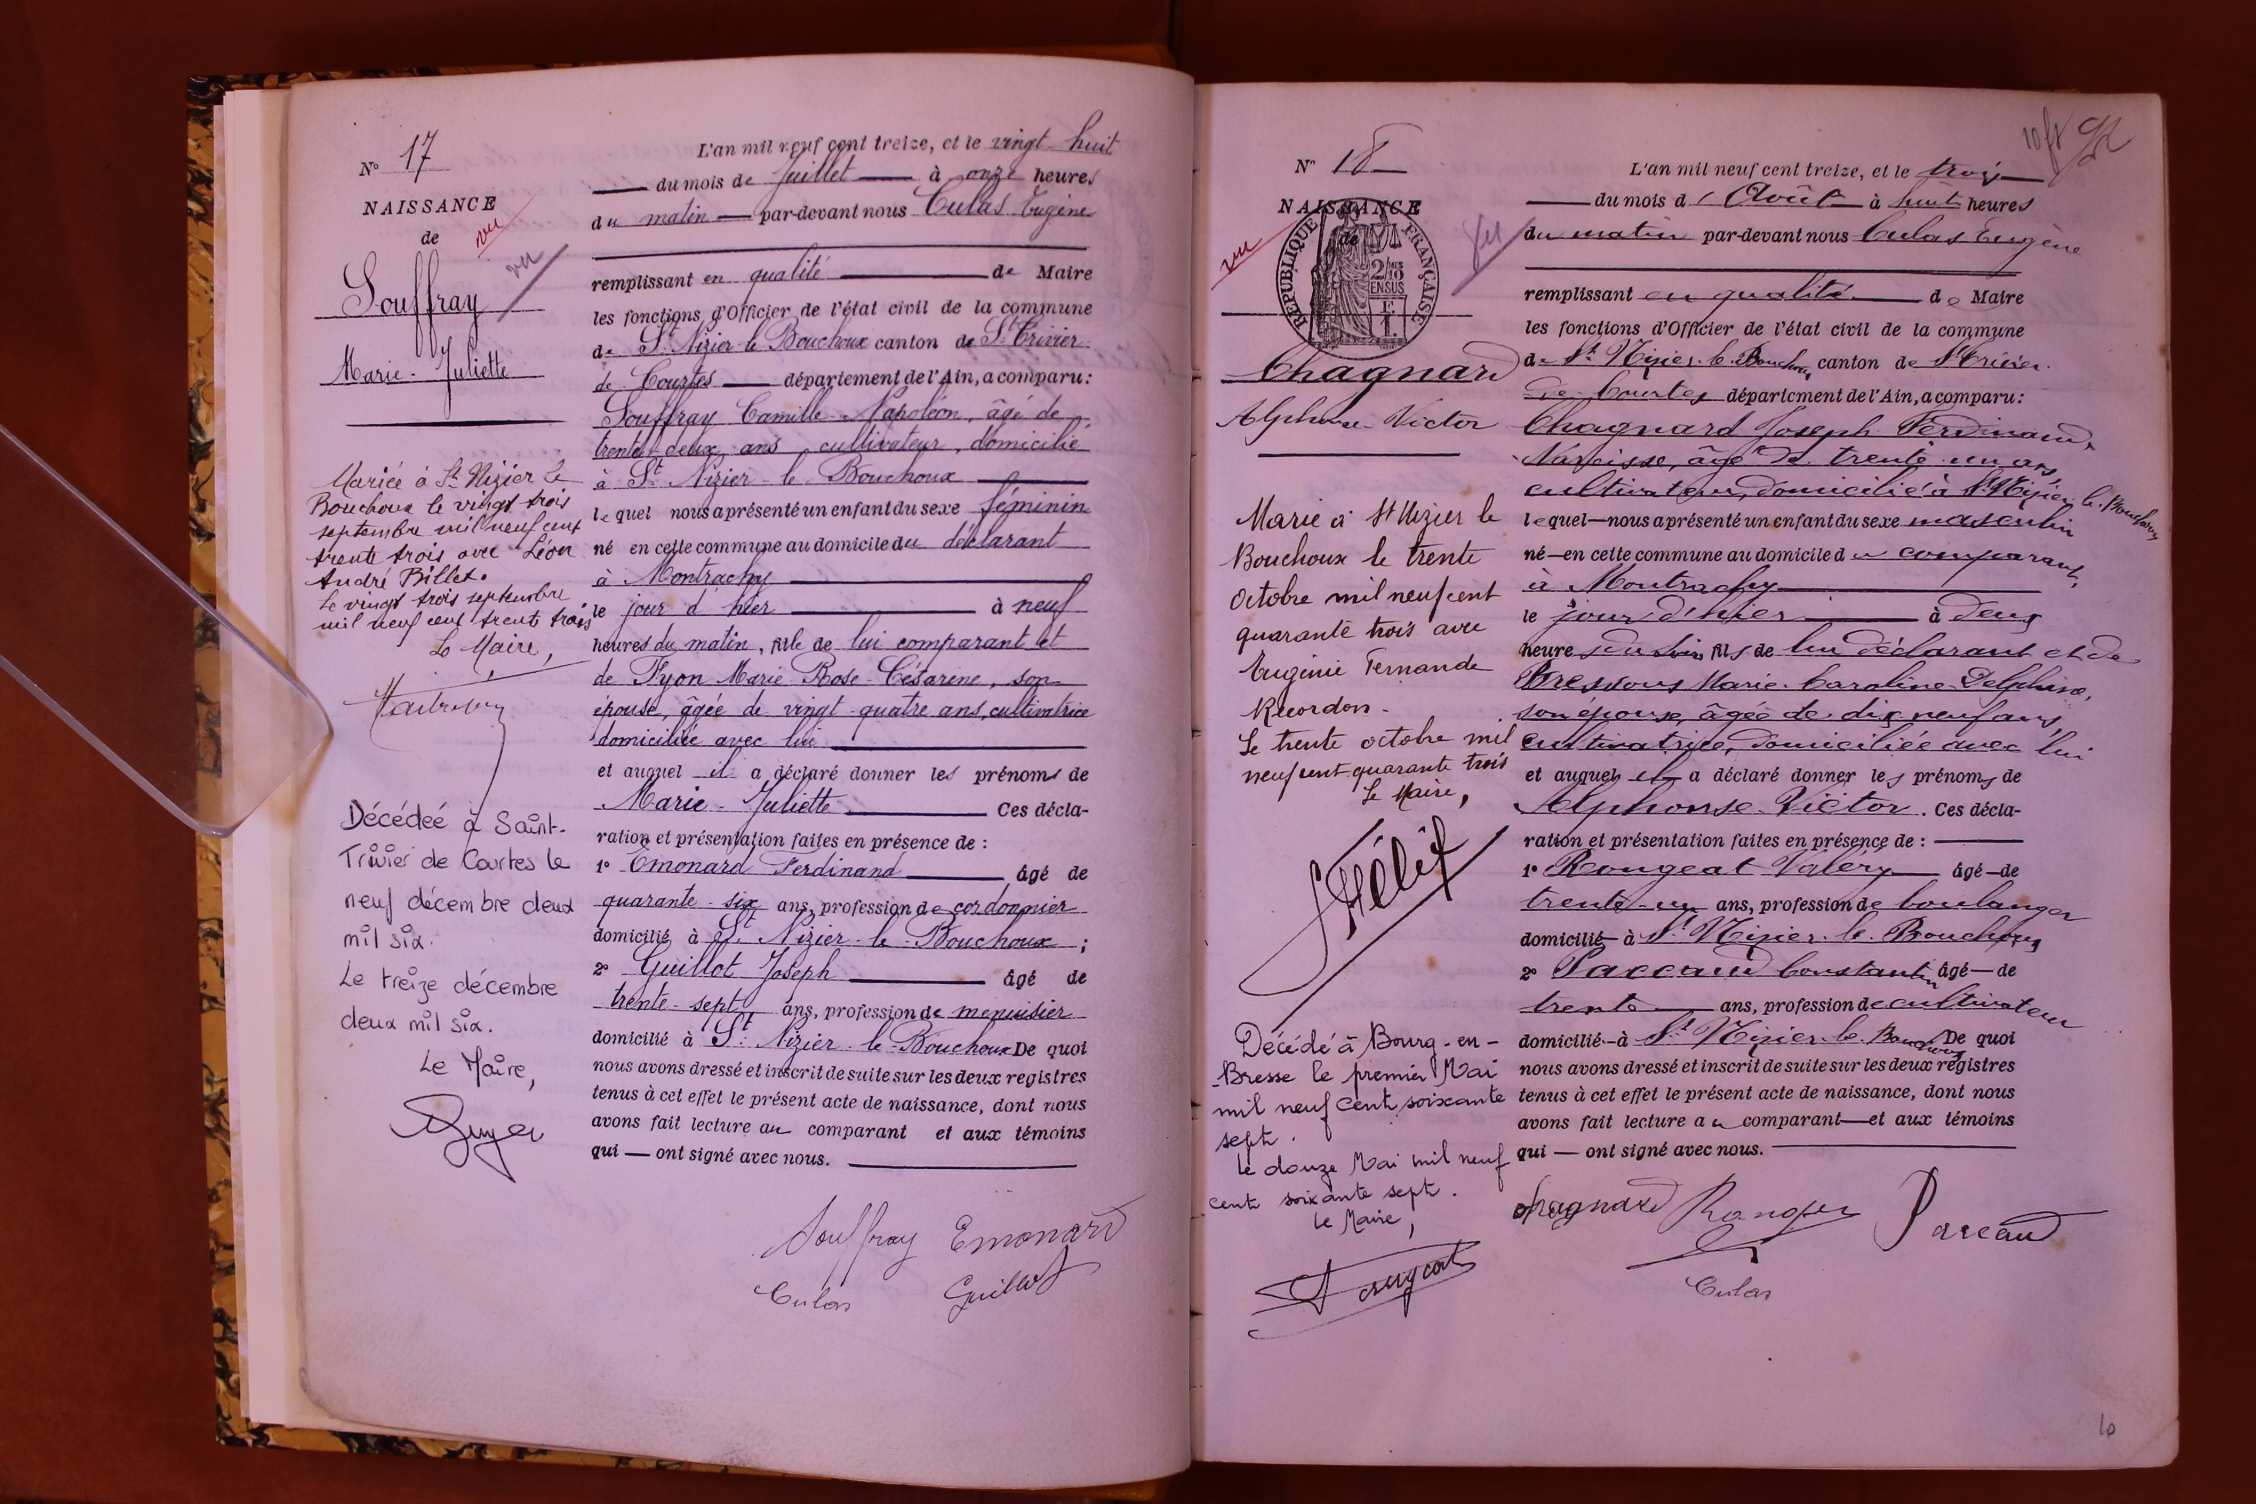 N° 17
NAISSANCE
de
vu
vu
Souffray
Marie-Juliette
Mariée à St Nizier le
Bouchoux le vingt trois
septembre mil neuf cent
trente trois avec Léon
André Billet.
Le vingt trois septembre
mil neuf cent trente trois
Le Maire,
Décédée à Saint-
Trivier de Courtes le
neuf décembre deux
mil six.
Le treize décembre
deux mil six.
Le Maire,
L'an mil neuf cent treize, et le vingt huit
du mois de Juillet à onze heures
du matin par-devant nous Culas Eugène
remplissant en qualité de Maire
les fonctions d'Officier de l'état civil de la commune
de St Nizier-le-Bouchoux canton de St Trivier
de Courtes département de l'Ain, a comparu:
Souffray Camille Napoléon, âgé de
trente deux ans, cultivateur, domicilié
à St Nizier-le-Bouchoux
lequel nous a présenté un enfant du sexe féminin
né en cette commune au domicile du déclarant
à Montrachy
le jour d'hier à neuf
heures du matin, fille de lui comparant et
de Fyon Marie-Rose-Césarine, son
épouse, âgée de vingt-quatre ans, cultivatrice
domiciliée avec lui
et auquel il a déclaré donner les prénoms de
Marie-Juliette Ces décla-
ration et présentation faites en présence de :
1° Emonard Ferdinand âgé de
quarante-six ans, profession de cordonnier
domicilié à St Nizier-le-Bouchoux ;
2° Guillot Joseph âgé de
trente-sept ans, profession de menuisier
domicilié à St Nizier-le-Bouchoux De quoi
nous avons dressé et inscrit de suite sur les deux registres
tenus à cet effet le présent acte de naissance, dont nous
avons fait lecture au comparant et aux témoins
qui — ont signé avec nous.
Souffray Emonard
Culas Guillot
N° 18
NAISSANCE
de
vu
vu
RÉPUBLIQUE FRANÇAISE
2/10 MES
EN SUS
F
1.
Chagnard
Alphonse-Victor
Marié à St Nizier le
Bouchoux le trente
octobre mil neuf cent
quarante trois avec
Eugénie Fernande
Ricordon.
Le trente octobre mil
neuf cent quarante trois
Le Maire,
Décédé à Bourg-en-
Bresse le premier Mai
mil neuf cent soixante
sept.
Le douze Mai mil neuf
cent soixante sept.
Le Maire,
L'an mil neuf cent treize, et le trois
du mois d'Août à huit heures
du matin par-devant nous Culas Eugène
remplissant en qualité de Maire
les fonctions d'Officier de l'état civil de la commune
de St Nizier-le-Bouchoux canton de St Trivier
de Courtes département de l'Ain, a comparu:
Chagnard Joseph Ferdinand
Narcisse, âgé de trente un ans,
cultivateur, domicilié à St Nizier-le-Bouchoux
lequel—nous a présenté un enfant du sexe masculin
né—en cette commune au domicile du comparant,
à Montrachy
le jour d'hier à deux
heures du soir fils de lui déclarant et de
Bressous Marie-Caroline-Delphine,
son épouse, âgée de dix neuf ans,
cultivatrice, domiciliée avec lui
et auquel il a déclaré donner les prénoms de
Alphonse-Victor. Ces décla-
ration et présentation faites en présence de :
1° Rongeat Valéry âgé—de
trente-un ans, profession de boulanger
domicilié à St Nizier-le-Bouchoux
2° Paccaud Constantin âgé—de
trente ans, profession de cultivateur
domicilié-à St Nizier-le-Bouchoux De quoi
nous avons dressé et inscrit de suite sur les deux registres
tenus à cet effet le présent acte de naissance, dont nous
avons fait lecture au comparant—et aux témoins
qui — ont signé avec nous.
Chagnard Paccaud
Culas
10